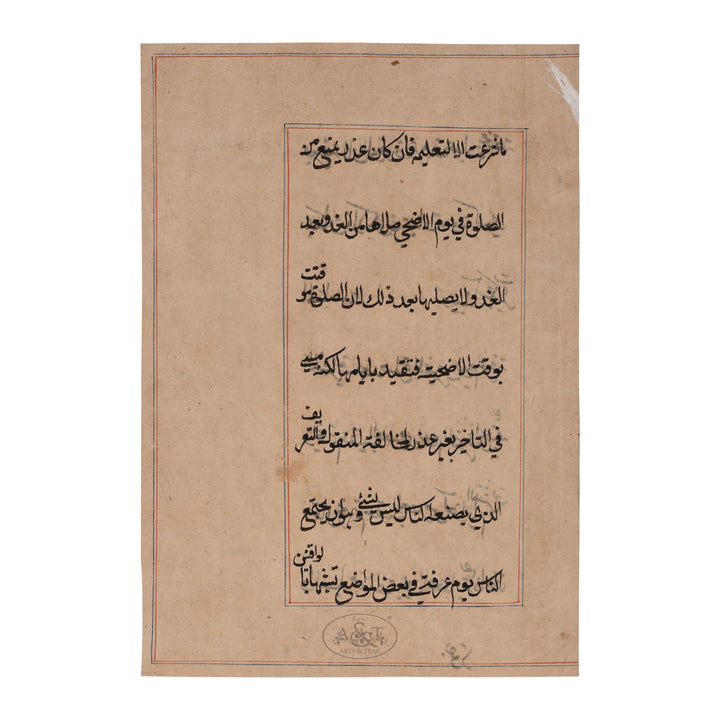 ما شرعت الا لتعليمه فان كان عذر يمنع من
الصلوة في يوم الاضحى صلاها من الغد وبعد
الغد ولا يصليها بعد ذلك لان الصلوة موقتة
بوقت الاضحية فتقيد بايامها لكنه مسيئ
في التاخير بغير عذر لمخالفة المنقول والتعريف
الذي يصنعه الناس ليس بشئ وهو ان يجتمع
الناس يوم عرفة في بعض المواضع تشبها بالواقفين
RAWI
A&T
ARTS & TEAK